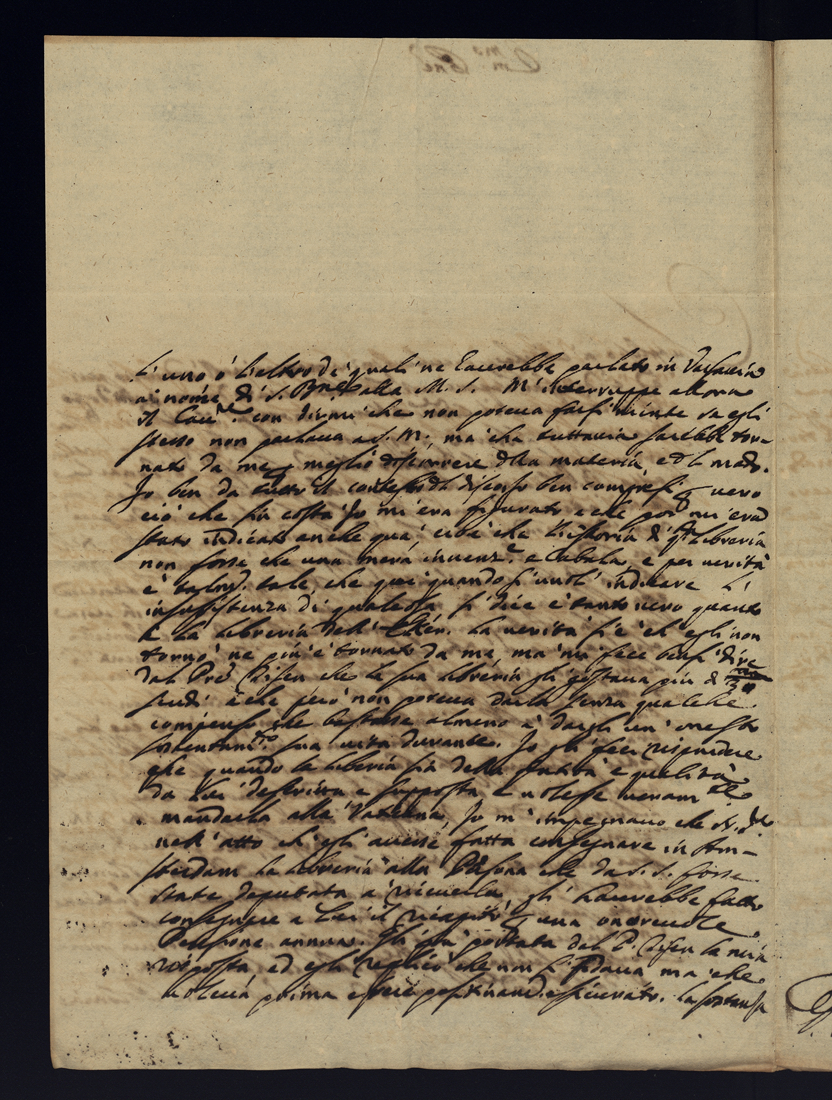 l'uno ò l'altro de quali ne haverebbe parlato in
a nome di S. alla M. S. M'interruppe allora
il Cav.re con dirmi che non poteva farsi niente se egli
stesso non parlava a S. M., ma che tuttavia sarebbe tor-
nato da me meglio discorrere della materia, e del modo.
Io ben da tutto il contesto del discorso ben compresi vero
ciò che sin costà Io mi era figurato e che mi era
stato indicato anche quà, cioè che l'historia di q.ta libreria
non fosse che una mera invenz.e e Cabala, e per verità
è tale che qui quando si vuol' indicare l'
insussistenza di qualcosa si dice è tanto vero quanto
è la libreria dell' La verità si è ch'egli non
tornò ne più è tornato da me, ma mi fece bensì dire
dal Pre che la sua libreria gli costava più di 30
scudi e che però non poteva darla senza qualche
compenso che bastasse almeno à dargli un' onesto
sua vita durante. Io gli feci rispondere
che quando la libreria sia della quantità e qualità
da Lui descritta e supposta e volesse veram.te
mandarla alla Vaticana, Io m'impegnavo che
nell'atto ch'egli avesse fatta consegnare in Am-
sterdam la libreria alla Persona che da S. S. fosse
stata deputata a riceverla, gli haverebbe fatto
conseguire a Lui il recapito una onorevole
Pensione annua. Gli fù portata dal P. la mia
risposta, ed egli replicò che non si fidava ma che
voleva prima essere assicurato. La sostanza